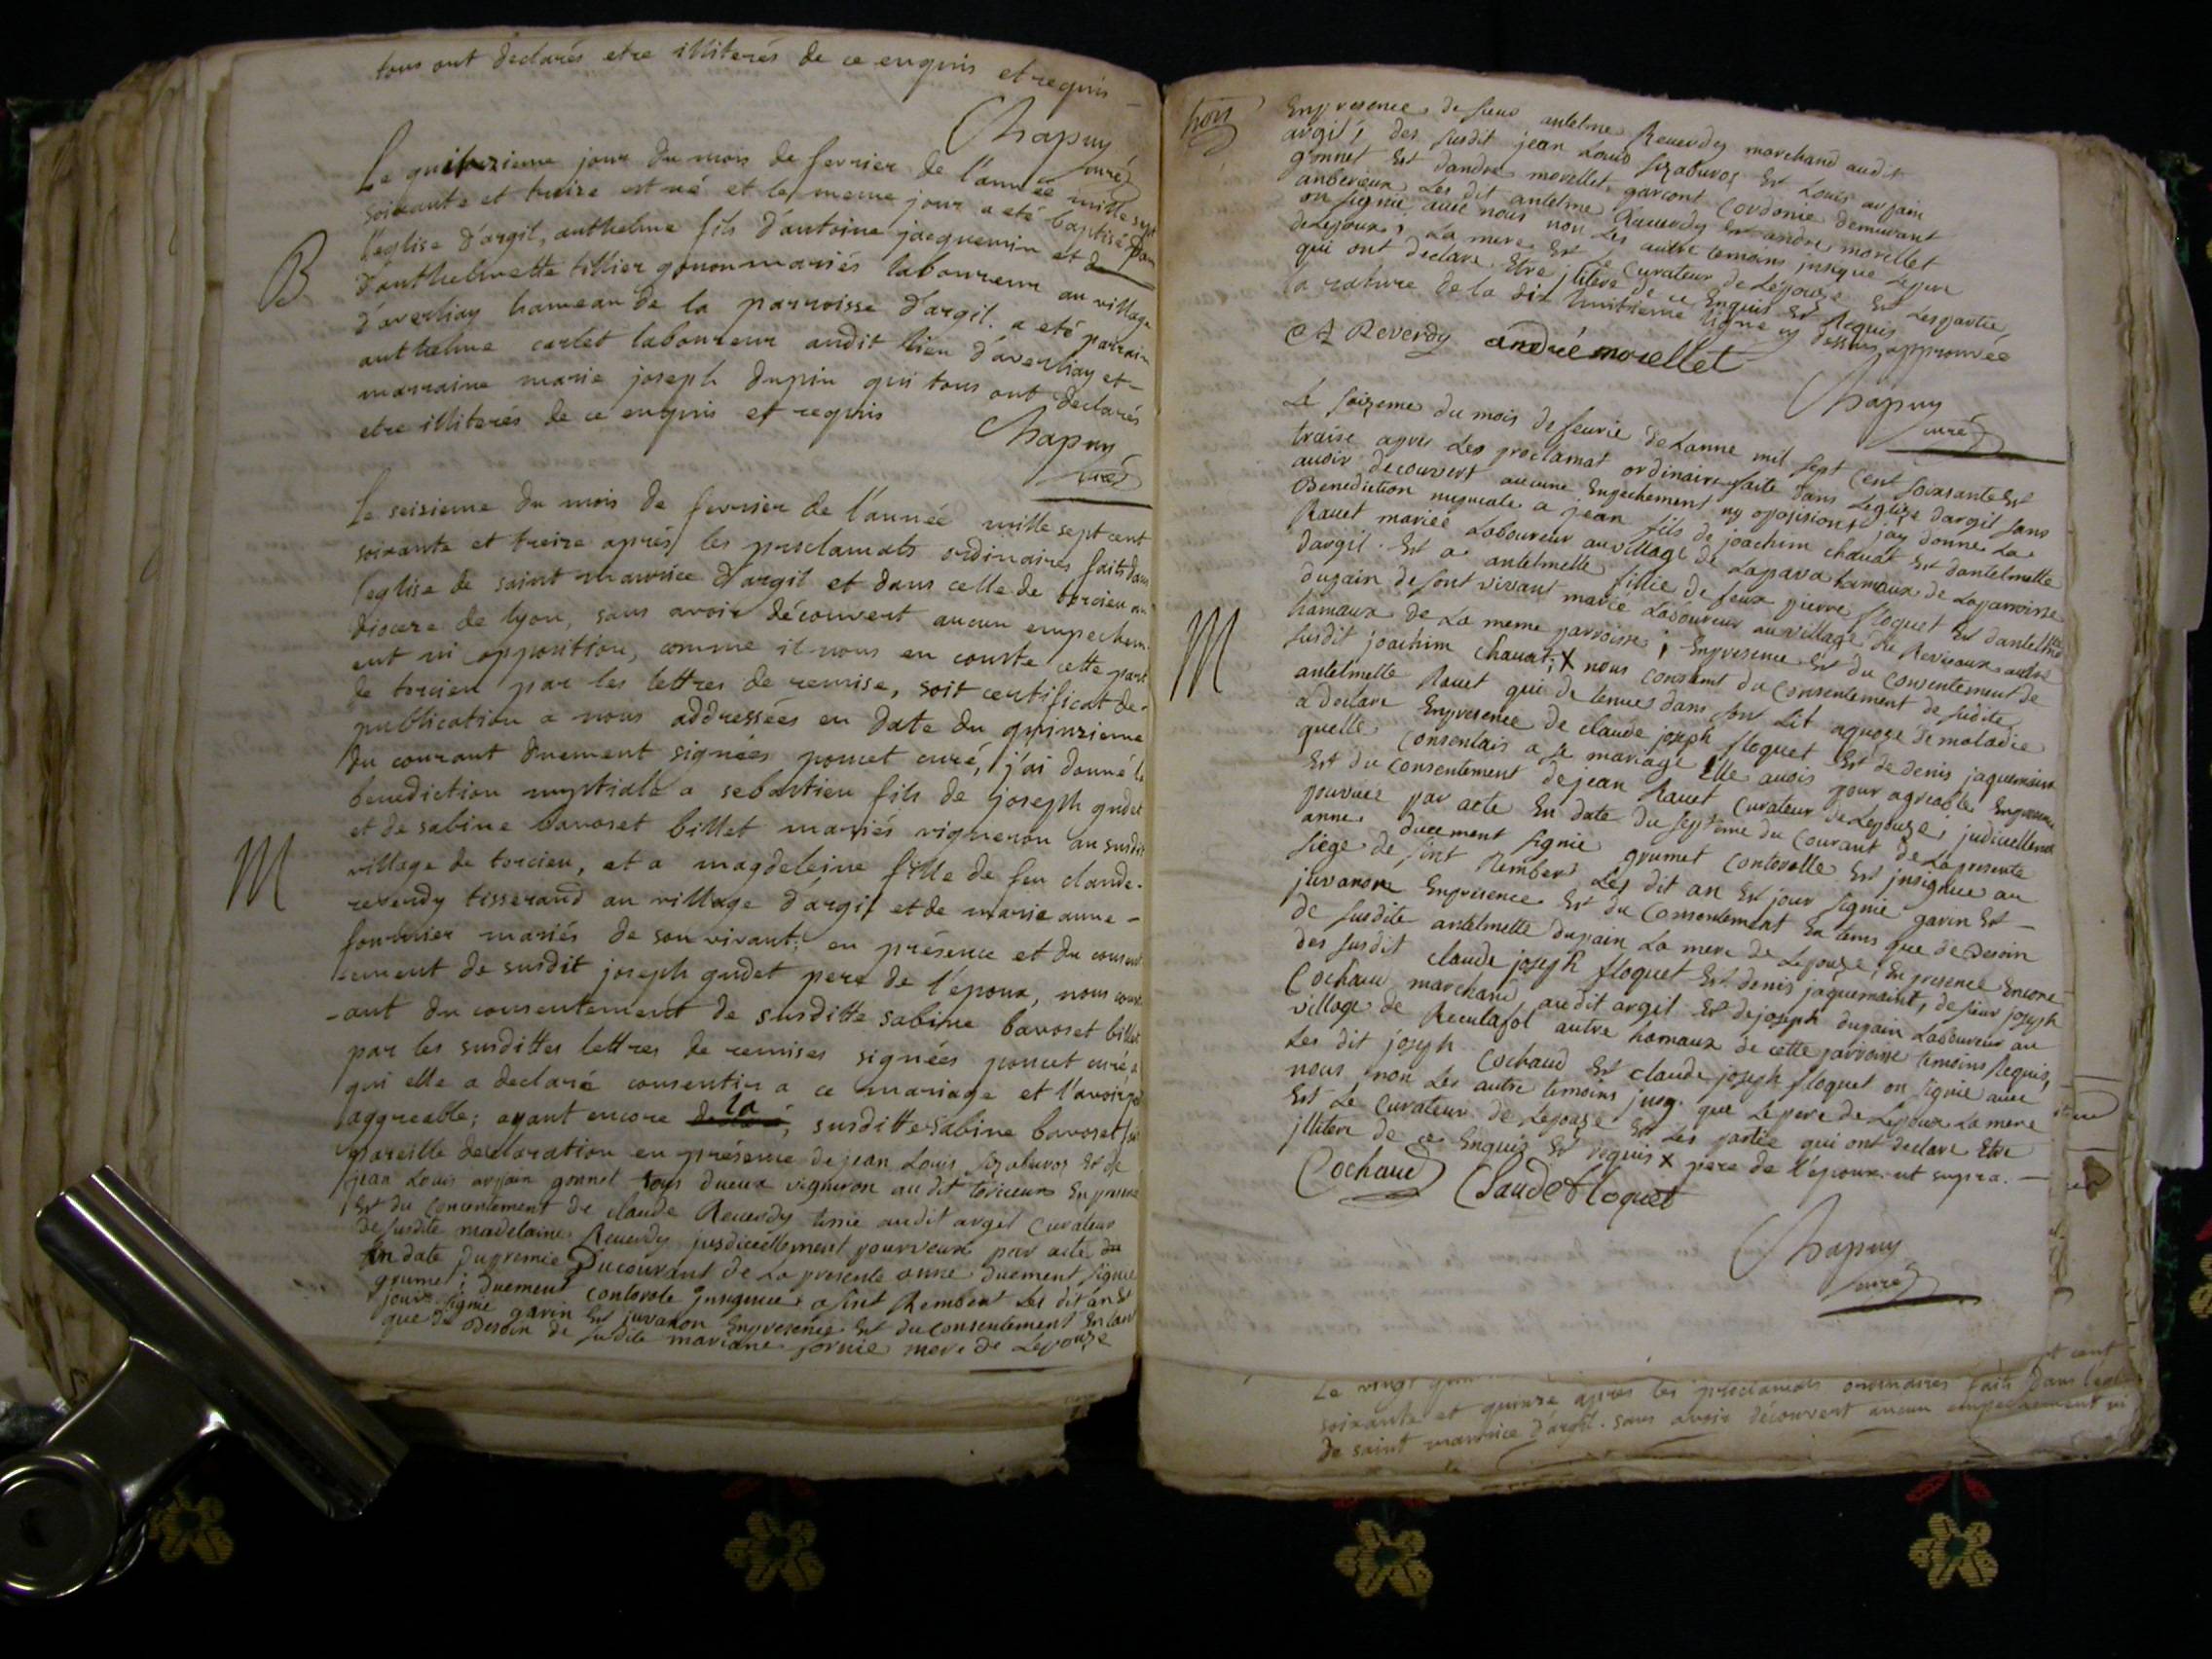 tous ont declarés etre illiterés de ce enquis et requis
Chapuy
curé
Le quinzieme jour du mois de fevrier de l'année mille sept
soixante et treize est né et le meme jour a eté baptisé dans
l'eglise d'argil, anthelme fils d'antoine jacquemin et de
B
d'anthelmette tillier gonon mariés laboureur au village
d'averliay hameau de la parroisse d'argil. a eté parrain
anthelme carlet laboureur audit lieu d'averliay et
marraine marie joseph dupin qui tous ont declarés
etre illiterés de ce enquis et requis
Chapuy
curé
Le seisieme du mois de fevrier de l'année mille sept cent
soixante et treize aprés les proclamats ordinaires faits dans
l'eglise de saint maurice d'argil et dans celle de torcieu au
diocese de lyon, sans avoir découvert aucun empechem
ent ni opposition, comme il nous en conste cette part
de torcieu par les lettres de remise, soit certificat de
publication a nous addressées en date du quinzieme
du courant duement signées poncet curé, j'ai donné la
benediction nuptiale a sebastien fils de joseph gudet
et de sabine bavoset billet mariés vigneron au susdit
M
village de torcieu, et a magdeleine fille de feu claude
reverdy tisserand au village d'argil et de marie anne -
fournier mariés de son vivant; en présence et du consent
-ement de susdit joseph gudet pere de l'époux, nous const
-ant du consentement de susditte sabine bavoset billet
par les susdittes lettres de remises signées poncet curé a
qui elle a declaré consentir a ce mariage et l'avoir
aggreable; ayant encore la susditte sabine bavoset
pareille declaration en présence de jean Louis et de
jean Louis arpain gonnet tous dueux vigneron au dit torcieux En presence
Est du Consentement de claude Reverdy tissie audit argil Curateur
de susdite madelaine Reverdy jusdiciellement pourveux par acte du
En date du premie Du courant de La presente anne duement signie
grumet; duement controle Insignue a sint Rembert Les dit an Est
jour signie gavin Est juvanon Enpresence Est du consentement En tant
que de Besoin de susdite mariane fornie mere de Lepouse
Enpresence de sieur antelme Reverdy marchand audit
argil, des susdit jean Louis Est Louis arpain
gonnet Est dandre morellet garcont Cordonie demeurant
anberieux Les dit antelme Reverdy Est andre morellet
on signie avec nous non Les autre temoins jusque Lepere
deLepoux; La mere Est Le Curateur de Lepouse Est Les partie
qui ont declare Etre jlitere de ce Enquis Est Requis
la rature de la dix huitieme ligne cy dessus approuvée
A Reverdy andré morellet
Chapuy
curé
Le saizeme du mois de feurie de Lanne mil sept Cent soixsante Est
traise apres Les proclamat ordinaire faite dans Leglize dargil sans
avoir decouvert aucune Enpechement ny oposision jay donne La
Benediction nupsiale a jean fils de joachim chavat Est dantelmette
Ravet mariée Laboureur au village de Lapava hamaux de Laparroisse
dargil. Est a antelmette fillie de feux pierre floquet Est dantelmette
dupain de sont vivant mariée Laboureur au village de Revoiaux autre
M
hamaux de La meme parroisse; Enpresence Est du Consentement de
susdit joachim chavat; x nous constent du Consentement de sudite
antelmette Ravet qui de tenue dans son Lit aquoze de maladie
a declare Enpresence de claude joseph floquet Est de denis jaquemaint
quelle Consentais a se mariage Elle avois pour agreable Enpresence
Est du Consentement de jean Ravet Curateur de Lepouse; judiciellement
pourvues par acte En date du septieme du Courant de La presente
anne duement signie grumet Controlle Est jnsignue au
siege de sint Rember Les dit an Est jour signie gavin Est -
juvanon Enpresence Est du Consentement En tems que de Besoin
de susdite antelmette dupain La mere de Lepouse; En presence Encore
des susdit claude joseph floquet Est denis jaquemaint, de sieur joseph
Cochaud marchand audit argil Est de joseph dupain Laboureur au
village de Reculafol autre hamaux de cette parroisse temoins Requis,
Les dit joseph Cochaud Est claude joseph floquet on signie avec
nous non Les autre temoins jusq. que Lepere de Lepoux La mere
Est Le Curateur de Lepouse Est Les partie qui ont declare Etre
jllitere de ce Enquis Est requis x pere de l'epoux. ut supra. -
Cochaud Claude floquet
Chapuy
curé
Le vingt
soixante et quinze aprés les proclamats ordinaires faits dans l'eglise
de saint maurice d'argil. sans avoir découvert aucun empechement ni